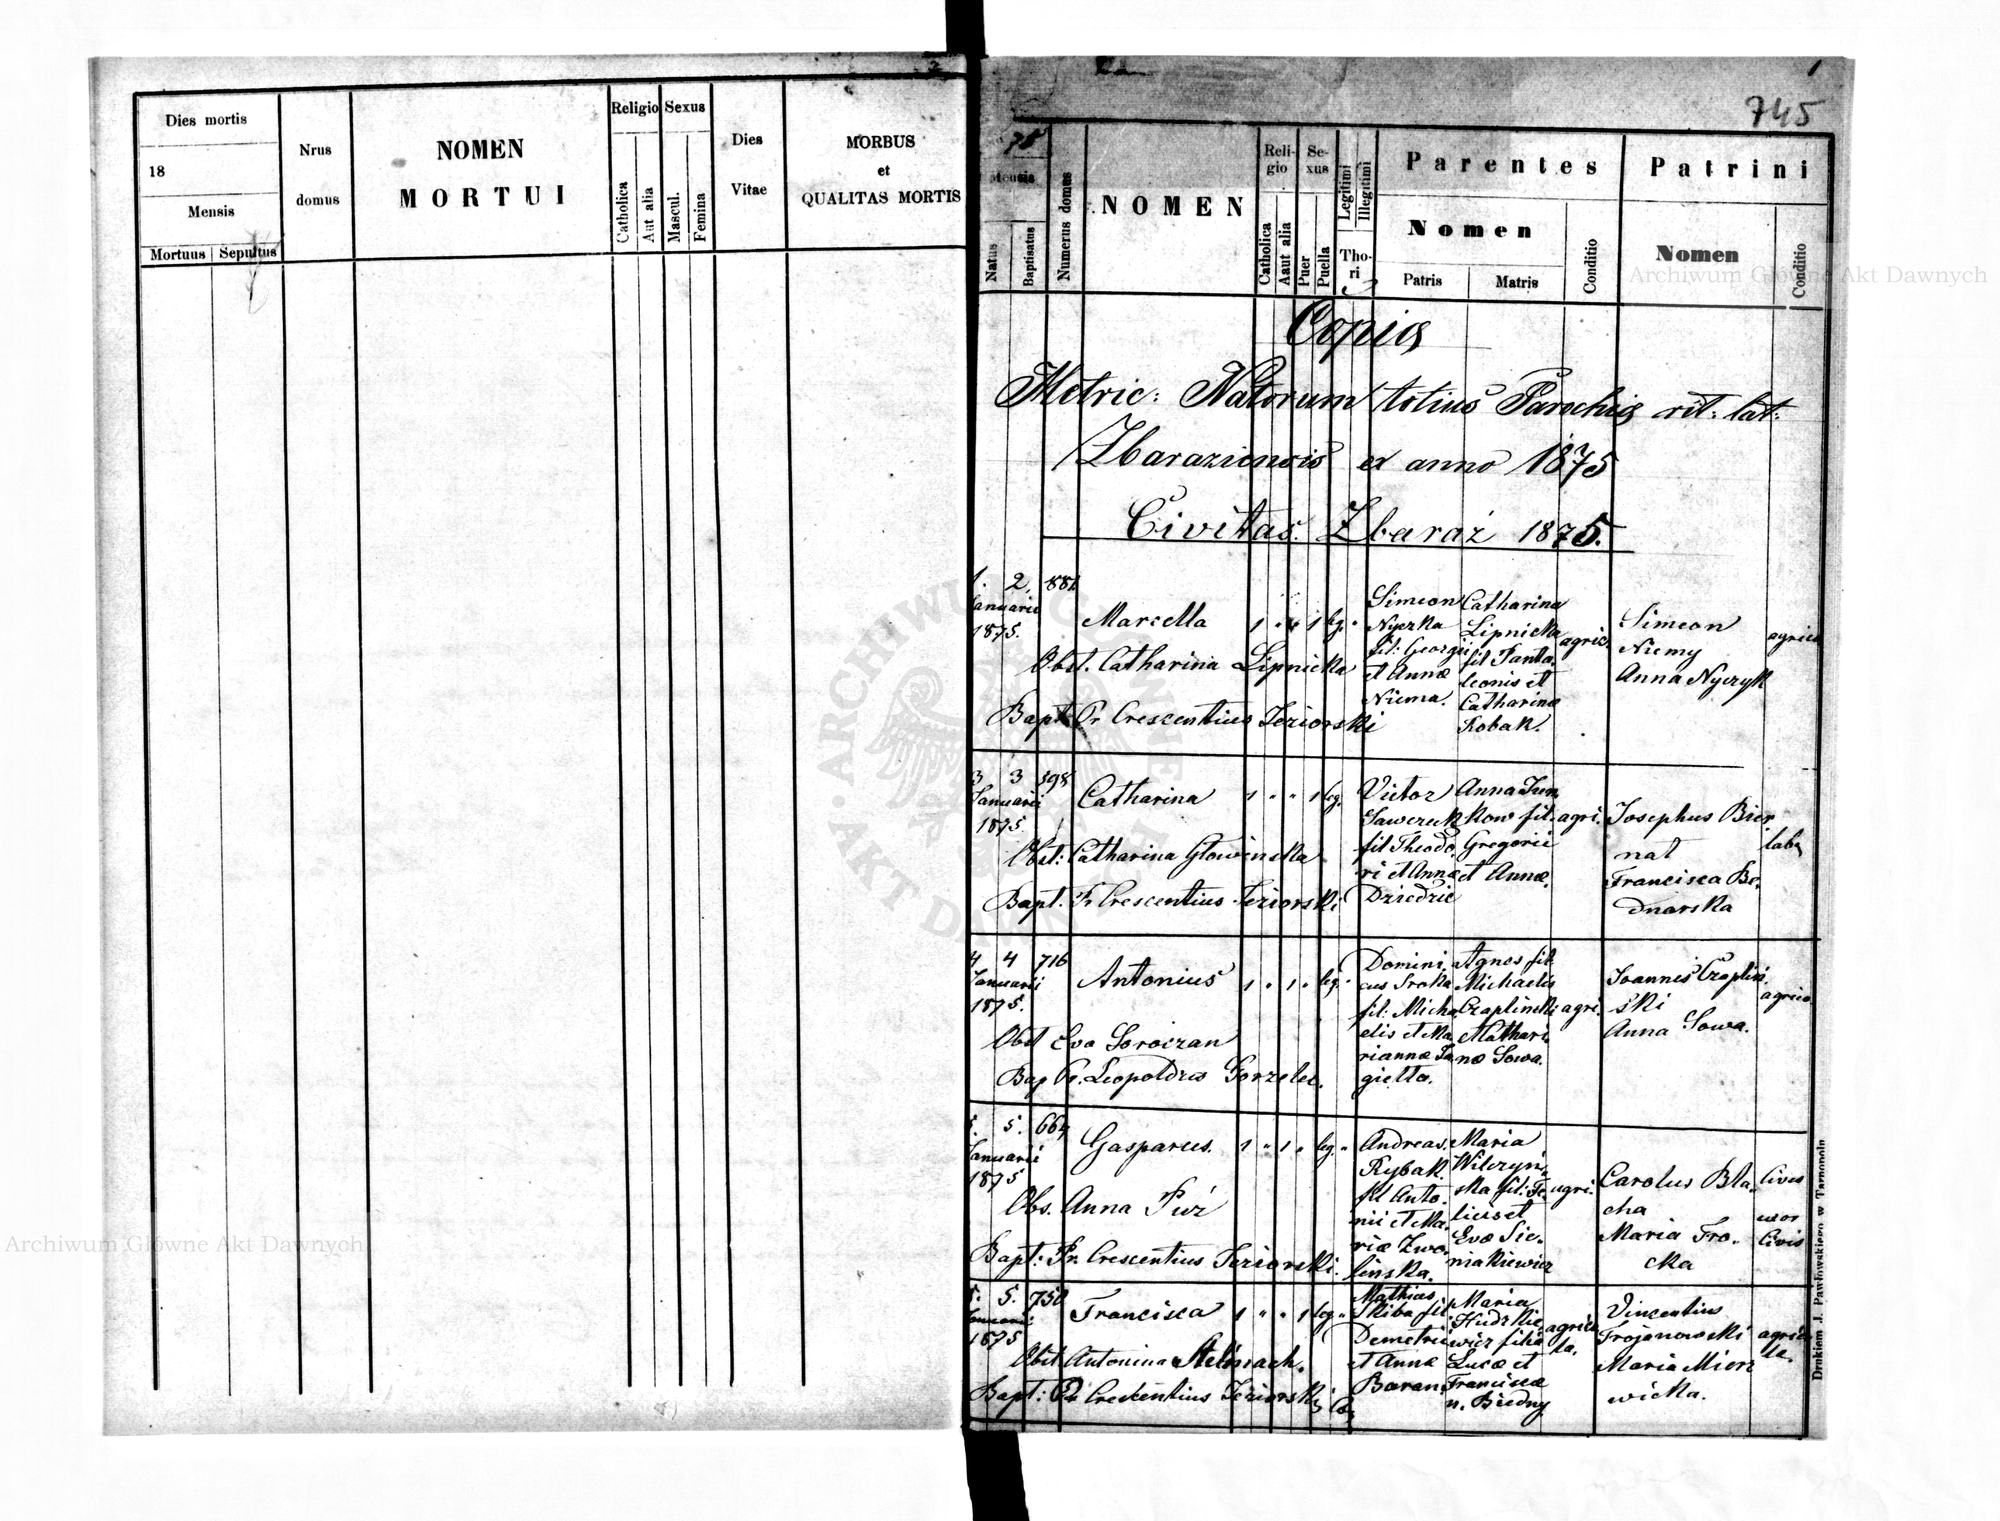 Dies mortis
18
Mensis
Mortuus
Sepultus
Nrus
domus
NOMEN
MORTUI
Religio
Catholica
Aut alia
Sexus
Mascul.
Femina
Dies
Vitae
MORBUS
et
QUALITAS MORTIS
1
745
75
Natus
Baptisatus
Numerus domus
NOMEN
Reli-
gio
Catholica
Aaut alia
Se-
xus
Puer
Puella
Legitimi
Illegitimi
Tho-
ri
Parentes
Nomen
Patris
Matris
Conditio
Patrini
Nomen
Conditio
Archiwum Główne Akt Dawnych
Copia
Metric: Natorum totius Parochia rit: lat:
Zbaraziensis ex anno 1875
Civitas. Zbaraż 1875.
1. 2.
Januarii
1875.
Marcella
1 " " 1 leg. "
Obst. Catharina Lipnicka
Bapt. Pr Crescentius Jeziorski
Simeon
Nyczka
fil: Georgii
et Annæ
Niema.
Catharina
Lipnicka
fil Panta
leonis et
Catharinæ
Kobak.
agric.
Simeon
Niemy
Anna Nyczyk
agrico
3 3 398
Januarii
1875.
Catharina
1 " " 1 leg.
Obst: Catharina Glowinska
Bapt. Pr Crescentius Jeziorski
Victor
Sawczuk
fil Theodo
ri et Annæ
Dziedzic
Anna
kow fil.
Gregorii
et Annæ.
agri.
Josephus Bier
nat
Francisca Be.
dnarska
4 4 716
Januarii
1875.
Antonius
1 " 1 " leg. "
Obst Eva Soroczan
Bap Pr. Leopoldus Gorzelec.
Domini
cus Sroka
fil: Micha
elis et Ma
riannæ Ja
giello.
Agnes fil
Michaelis
Czaplinski
et Kathari
næ Sowa.
agri.
Joannis Czaplin
ski
Anna Sowa.
agrico
5. 5. 664
Januarii
1875
Gasparus.
1 " 1 " leg. "
Obs. Anna Piż
Bapt: Pr. Crescentius Jeziorski.
Andreas.
Rybak.
fil Anto.
nii et Ma.
riæ Zwo.
linska.
Maria
Wilczyn.
ska fil: Fe
licis et
Evæ Sie.
niakiewicz
agri.
Carolus Bla
cha
Maria Fro.
cka
Civis
uxor
Civis
5. 5. 750
Januarii
1875
Francisca
1 " " 1 leg "
Obst Antonina Stelmach.
Bapt: Pr Crescentius Jeziorski
Mathias
Skiba fil
Demetrii
et Annæ
Baran
Maria
Hudzkie
wicz filia
Lucæ et
Franciscæ
n. Biedny
agrico
la.
Vincentius
Trojanowski
Maria Mierz
wicka.
agrico
la.
Drukiem J. Pawłowskiego w Tarnopolu
Archiwum Główne Akt Dawnych
ARCHIWUM GŁÓWNE
AKT DAWNYCH